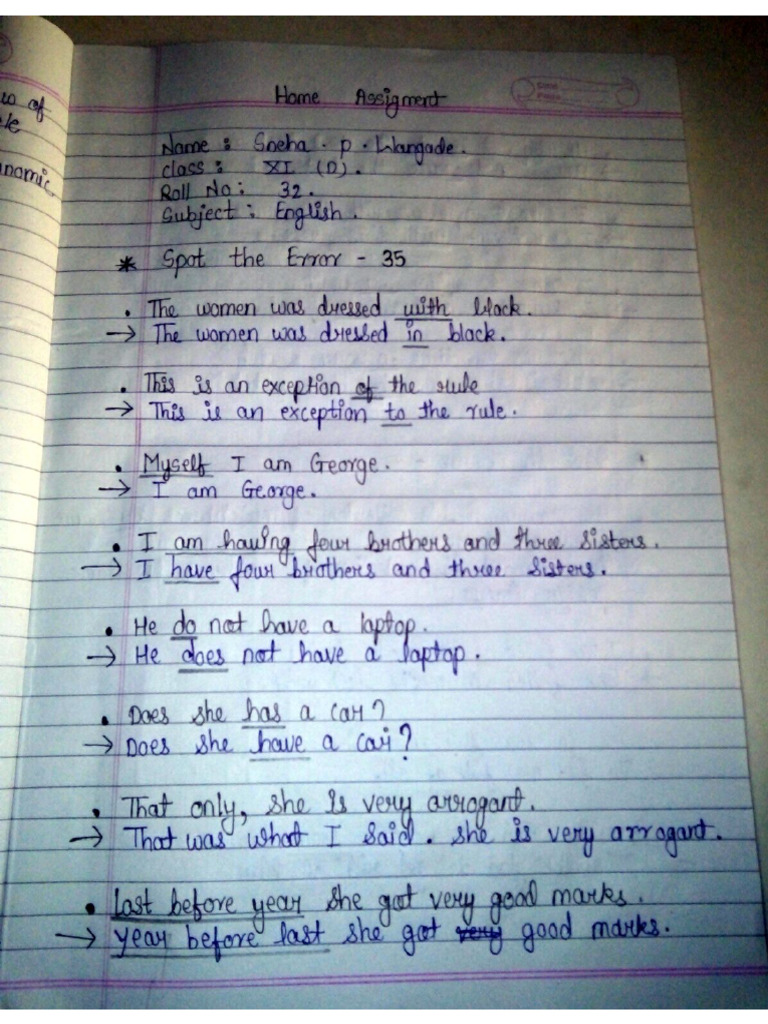 Home Assigment
Name : Sneha . P . Wangade .
Class : XI (D) .
Roll No : 32 .
Subject : English .
* Spot the Error - 35
. The women was dressed with black .
→ The women was dressed in black .
. This is an exception of the rule
→ This is an exception to the rule .
. Myself I am George .
→ I am George .
. I am having four brothers and three sisters .
→ I have four brothers and three sisters .
. He do not have a laptop .
→ He does not have a laptop .
. Does she has a car ?
→ Does she have a car ?
. That only, she is very arrogant .
→ That was what I said . she is very arrogant .
. last before year she got very good marks .
→ year before last she got very good marks .